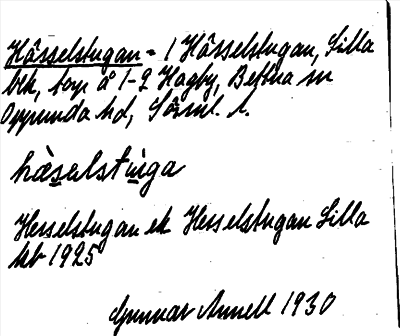 Hässelstugan = 1 Hässelstugan, Lilla
bek, torp å 1-2 Hagby, Bettna sn
Oppunda hd, Sörml. l.
hàsalstùga
Hesselstugan ek Hesselstugan Lilla
kb 1925
Gunnar Annell 1930